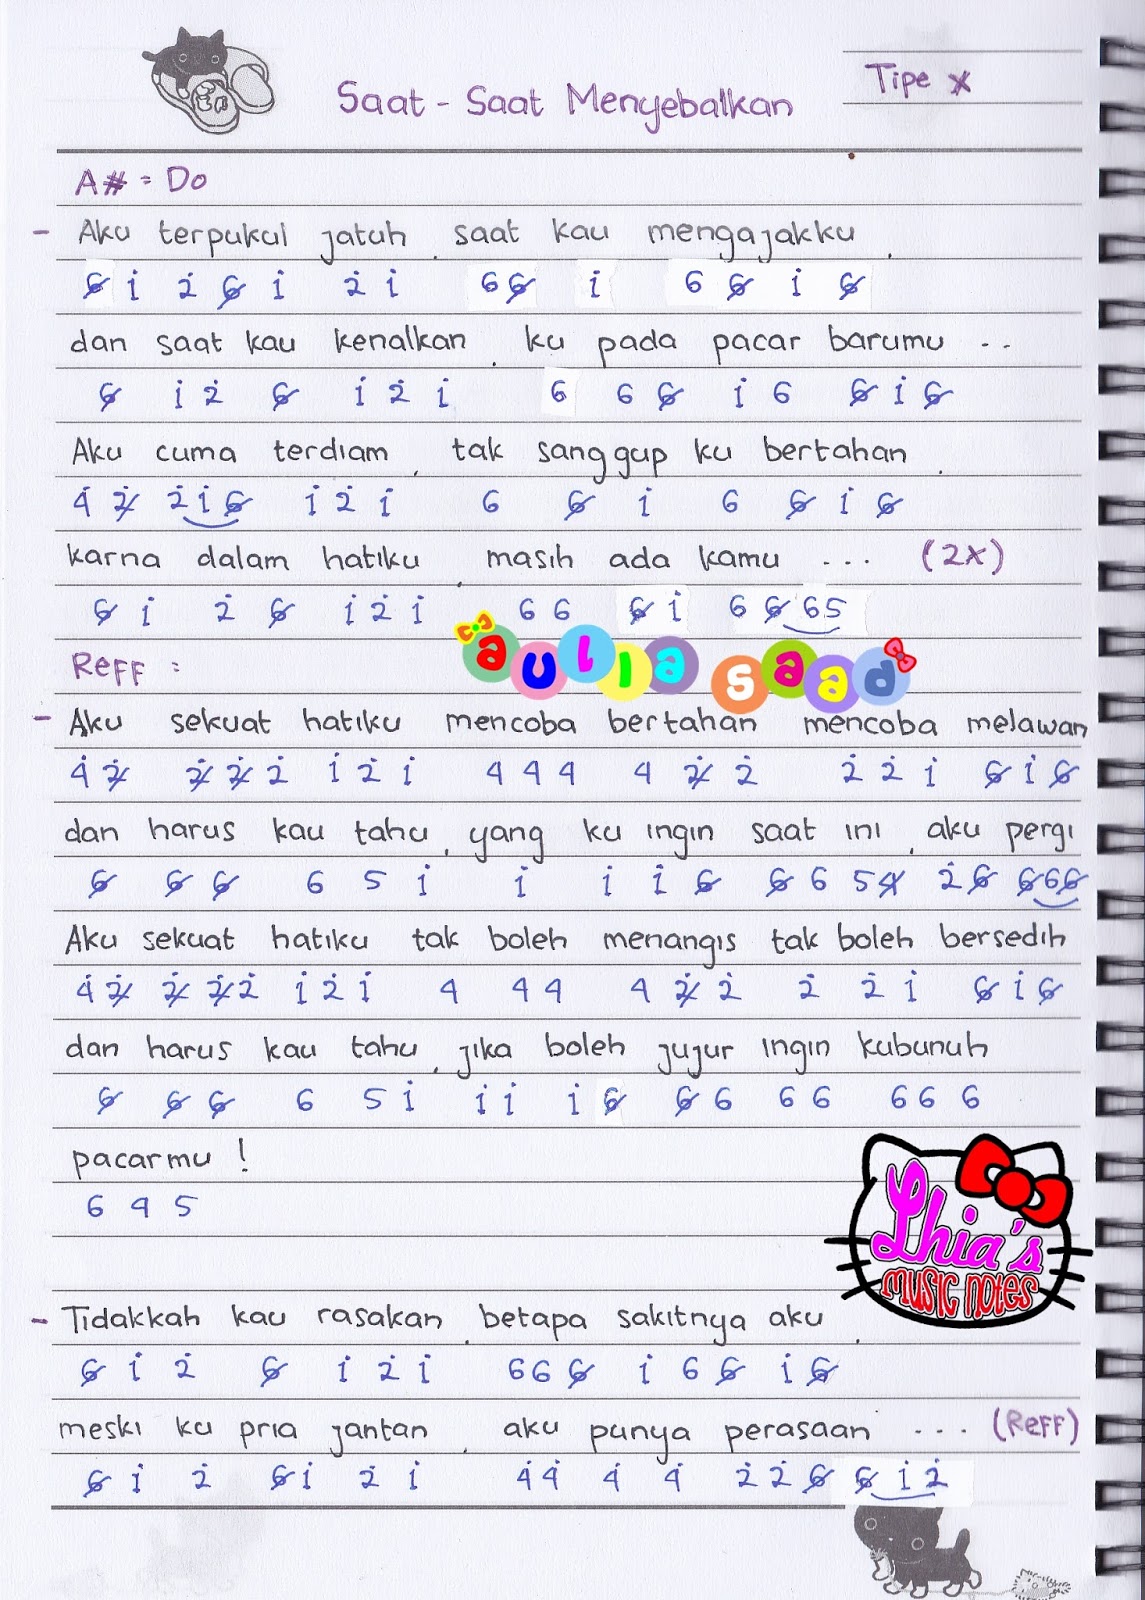 Saat - Saat Menyebalkan
Tipe X
A# = Do
- Aku terpukul jatuh, saat kau mengajakku,
6̸ i̇ 2̇ 6̸ i̇ 2̇ i̇ 6 6̸ i̇ 6 6̸ i̇ 6̸
dan saat kau kenalkan, ku pada pacar barumu ..
6̸ i̇ 2̇ 6̸ i̇ 2̇ i̇ 6 6 6̸ i̇ 6 6̸ i̇ 6̸
Aku cuma terdiam, tak sanggup ku bertahan,
4̇ 2̸̇ 2̇ i̇ 6̸ i̇ 2̇ i̇ 6 6̸ i̇ 6 6̸ i̇ 6̸
karna dalam hatiku, masih ada kamu ... (2x)
6̸ i̇ 2̇ 6̸ i̇ 2̇ i̇ 6 6 6̸ i̇ 6 6̸ 6 5
aulia saad
Reff :
- Aku sekuat hatiku mencoba bertahan mencoba melawan
4̇ 2̸̇ 2̸̇ 2̸̇ 2̇ i̇ 2̇ i̇ 4 4 4 4 2̸̇ 2̇ 2̇ 2̇ i̇ 6̸ i̇ 6̸
dan harus kau tahu, yang ku ingin saat ini, aku pergi
6̸ 6̸ 6̸ 6 5 i̇ i̇ i̇ i̇ 6̸ 6̸ 6 5 4̸ 2̇ 6̸ 6̸ 6 6̸
Aku sekuat hatiku tak boleh menangis tak boleh bersedih
4̇ 2̸̇ 2̸̇ 2̸̇ 2̇ i̇ 2̇ i̇ 4 4 4 4 2̸̇ 2̇ 2̇ 2̇ i̇ 6̸ i̇ 6̸
dan harus kau tahu, jika boleh jujur ingin kubunuh
6̸ 6̸ 6̸ 6 5 i̇ i̇ i̇ i̇ 6̸ 6̸ 6 6 6 6 6 6
pacarmu !
6 4 5
Lhia's
music notes
- Tidakkah kau rasakan, betapa sakitnya aku,
6̸ i̇ 2̇ 6̸ i̇ 2̇ i̇ 6 6 6̸ i̇ 6 6̸ i̇ 6̸
meski ku pria jantan, aku punya perasaan ... (Reff)
6̸ i̇ 2̇ 6̸ i̇ 2̇ i̇ 4̇ 4̇ 4̇ 4̇ 2̇ 2̇ 6̸ 6̸ i̇ 2̇